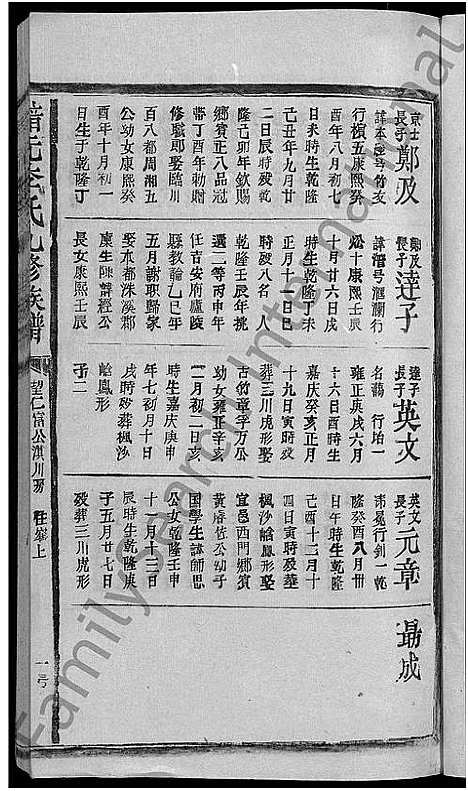 京士長子
鄭及
譚本區号竹友
行禎五康熙癸
酉年八月初七
日未時生乾隆
己丑年九月廿
二日辰時歿乾
隆己卯年欽賜
鄉賓正八品冠
帶丁酉年勅贈
修職郎娶臨川
百八都周湘五
公幼女康熙癸
酉年十月初一
日生于乾隆丁
鄭及長子
達子
諱濳号滙瀾行
十康熙壬辰
十月廿六日戌
時生乾隆丁未
正月十一日巳
時歿八名人
乾隆壬辰年挑
選二等丙申年
任吉安府廬陵
縣教諭乙巳年
五月謝职歸家
娶本都洙溪鄒
廩生陳諱經公
長女康熙壬辰
達子長子
英文
名藹行培一
雍正庚戌六月
十六日酉時生
嘉庆癸亥正月
十九日寅時歿
葬三川虎形娶
古竹章孚万公
幼女雍正辛亥
十一月初二日
時生嘉庆庚申
年七月初十日
戌時歿葬楓沙
鳳形
子二
英文長子
元章
行釗一乾
隆癸酉八月卅
日午時生乾隆
己酉十二月十
四日寅時歿葬
楓沙鳳形娶
宜邑西門鄉賓
黃竹公幼子
国學生諱師思
公女乾隆壬申
十一月十三日
辰時生乾隆庚
子五月廿七日
歿葬三川虎形
勗成
李氏九修族譜
望仁富公淇川房
一号
FamilySearch International